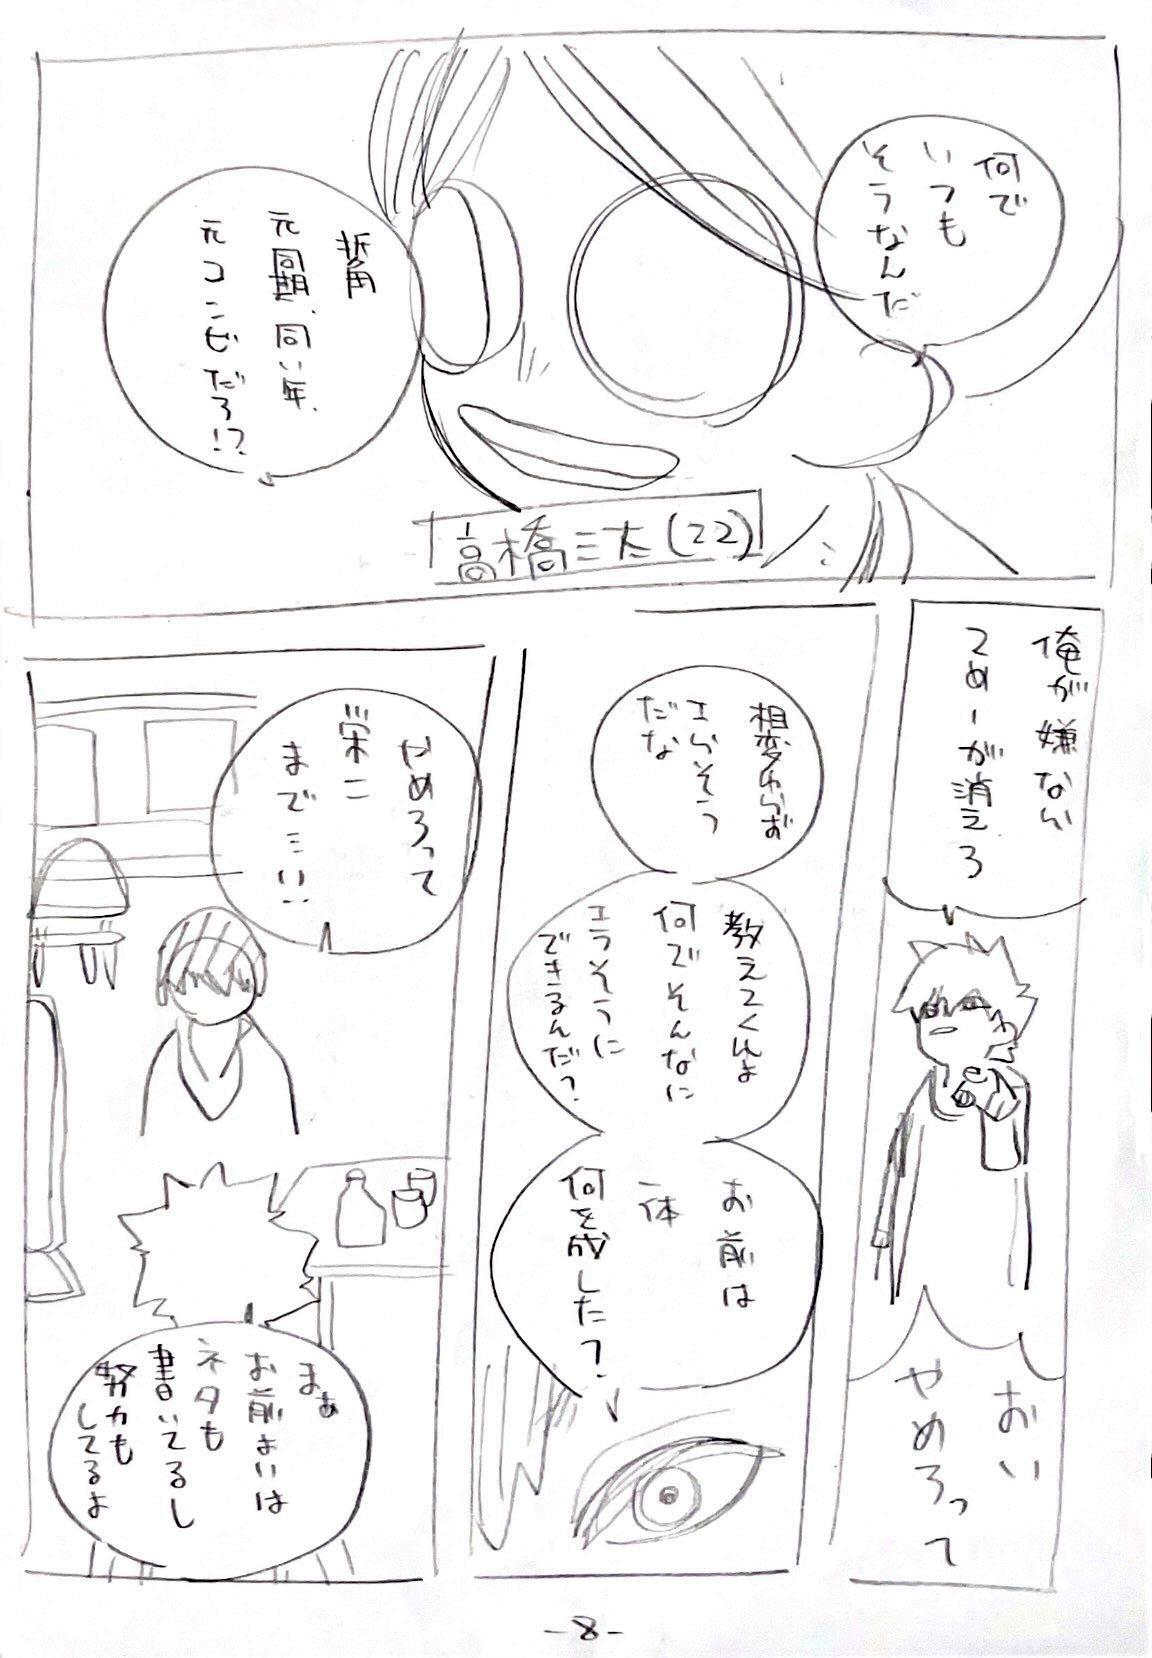 何で
いつも
そうなんだ
折角
元同期、同い年、
元コンビだろ!?
高橋三太(22)
俺が嫌なら
てめーが消えろ
おい
やめろって
相変わらず
エらそう
だな
教えてくれよ
何でそんなに
エラそうに
できるんだ?
お前は
一体
何を成した?
やめろって
栄二
まで…!!
まぁ
お前よいは
ネタも
書いてるし
努力も
してるよ
-8-